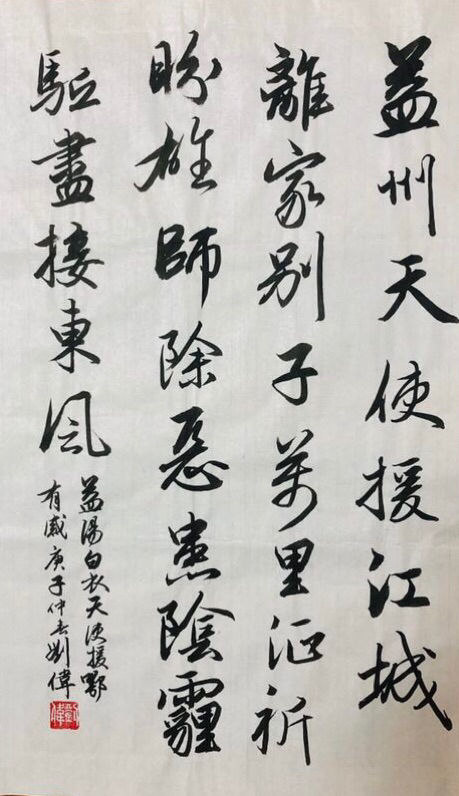 益州天使援江城
離家别子萬里征祈
盼雄師除惡患陰霾
駈盡接東風
益陽白衣天使援鄂
有感庚子仲春劉偉
劉偉